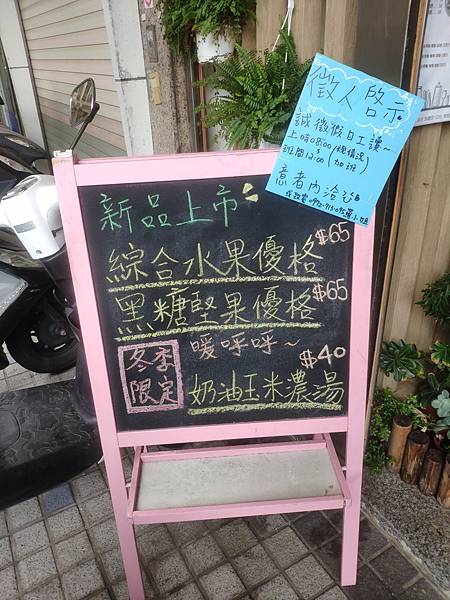 徵人啟示
誠徵假日工讀~
上班時間 08:00
12:00
(視情況加班)
意者內洽
新品上市
綜合水果優格 $65
黑糖堅果優格 $65
冬季限定
暖呼呼~
奶油玉米濃湯 $40